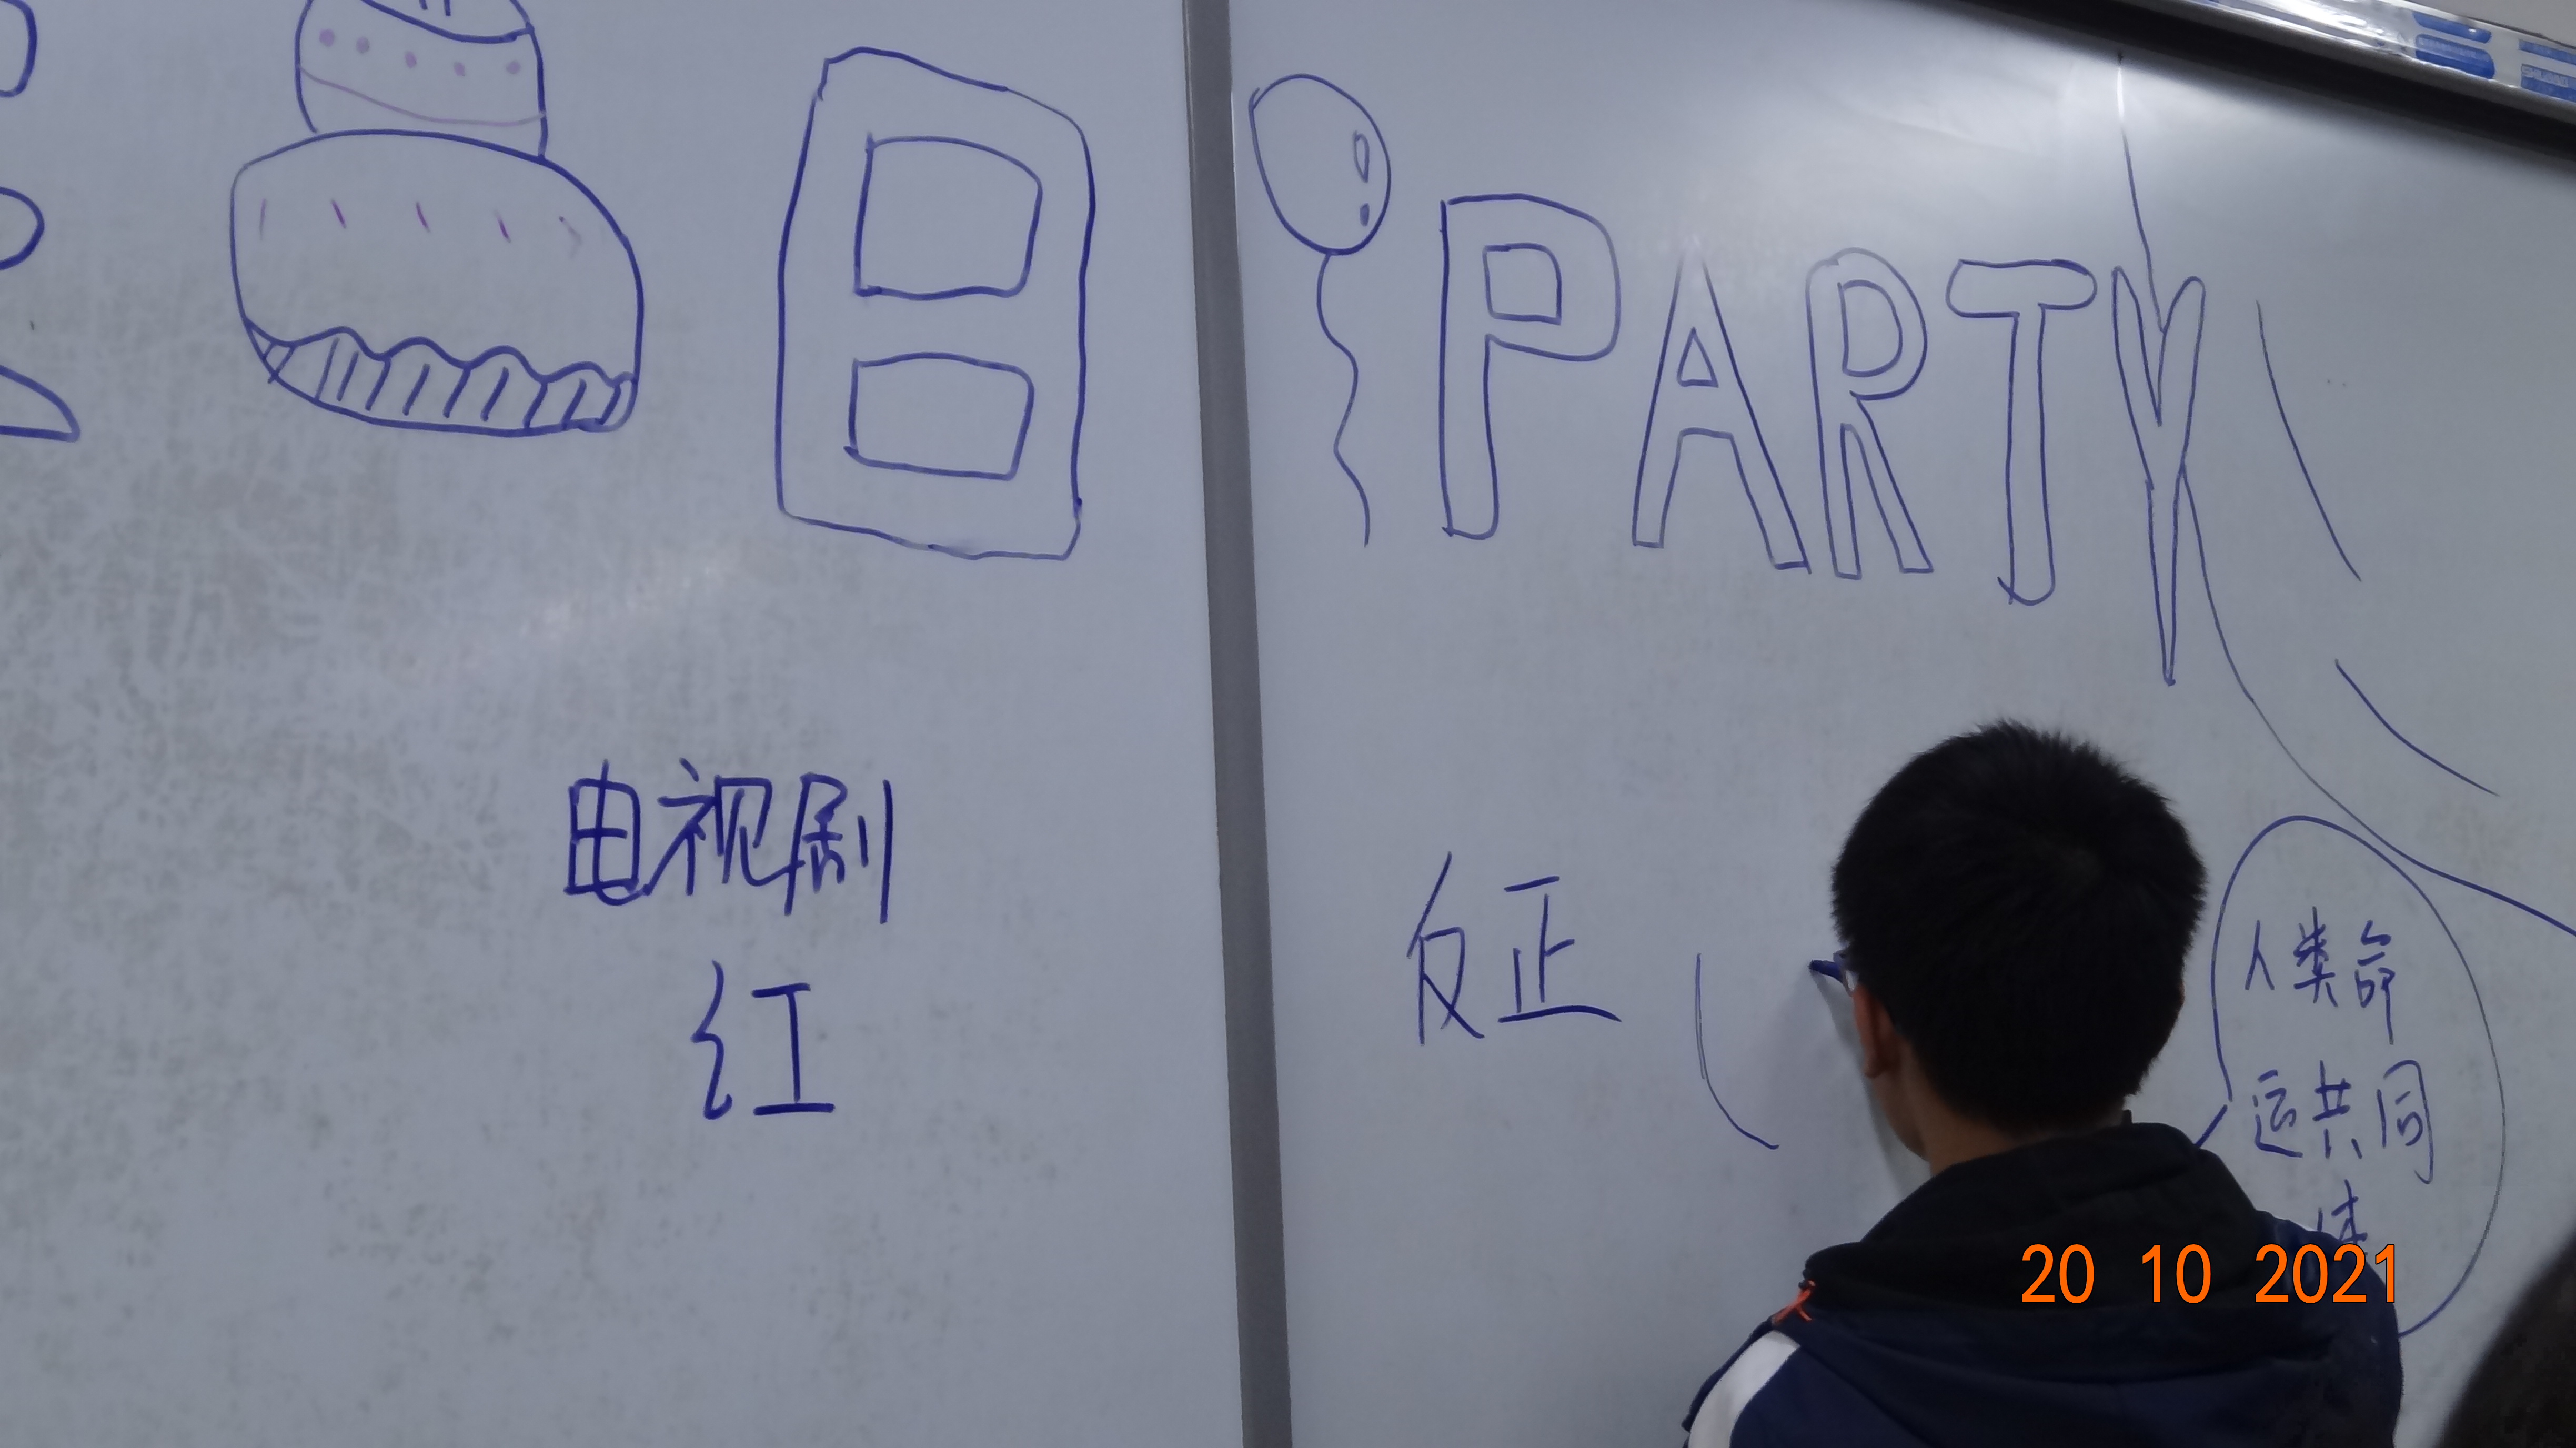 日 PARTY
电视剧
红
反正
人类命
运共同
体
20 10 2021